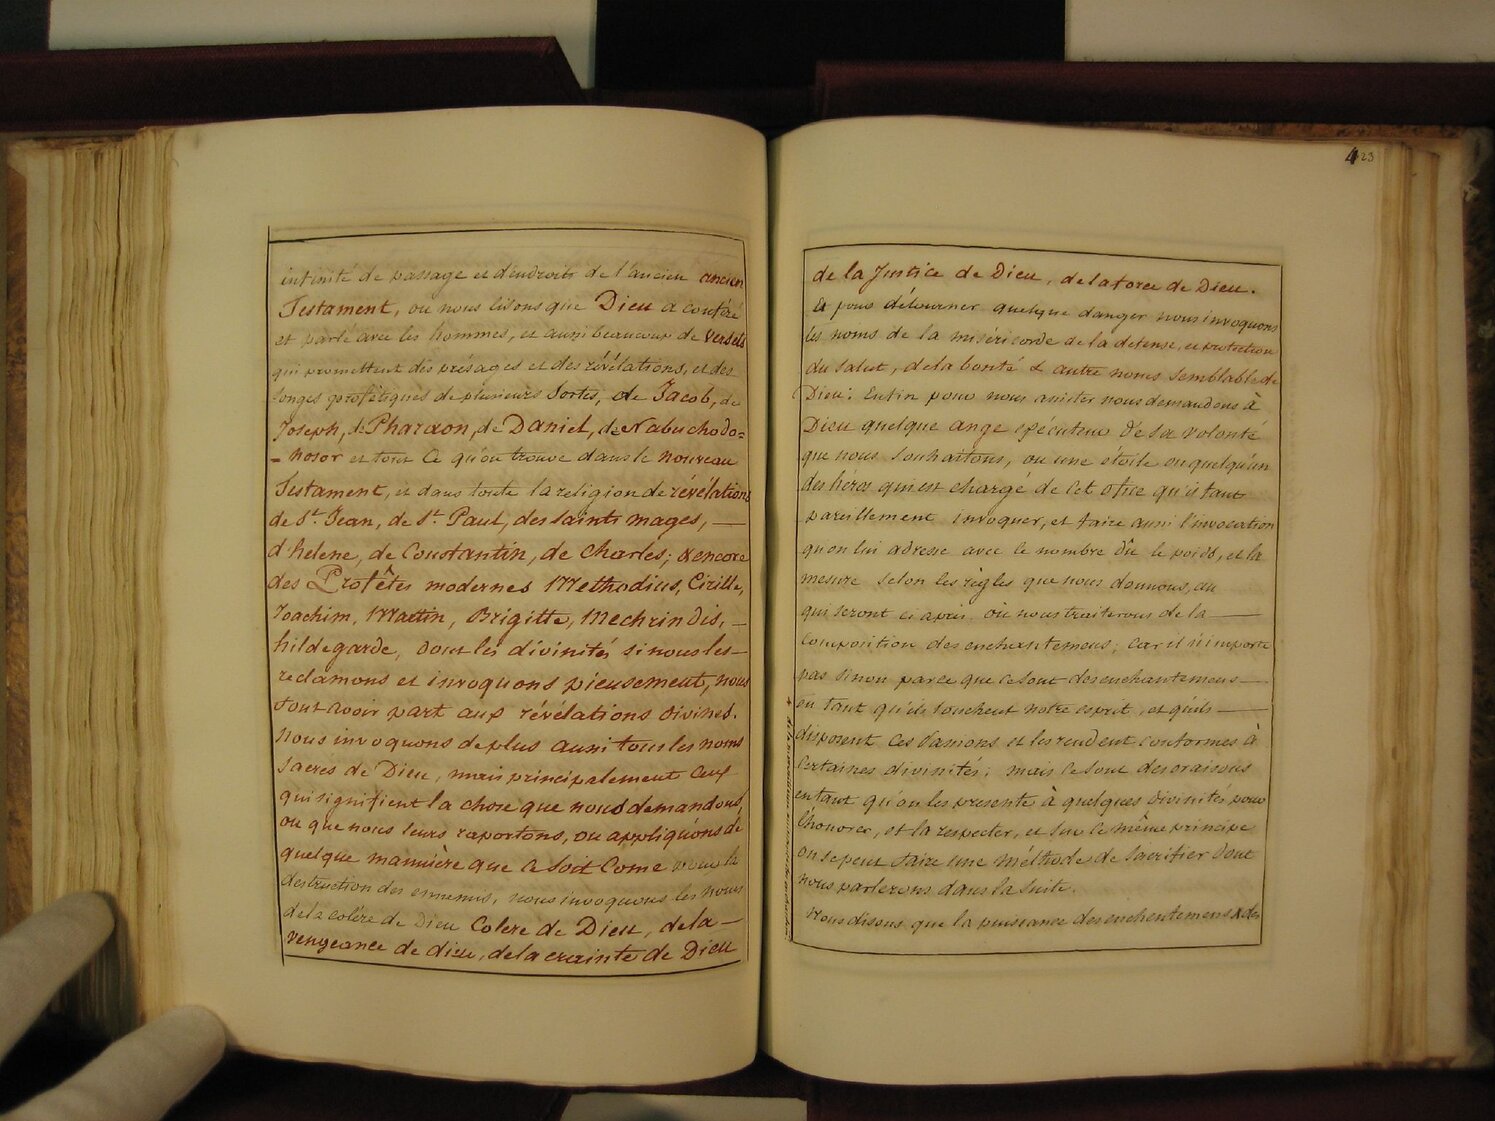 infinité de passage et d'endroits de l'ancien ancien
Testament, ou nous lisons que Dieu a conféré
et parlé avec les hommes, et aussi beaucoup de versets
qui promettent des présages et des révélations, et des
songes profétiques de plusieurs Sortes, de Jacob, de
Joseph, de Pharaon, de Daniel, de Nabuchodo=
- nosor et tout Ce qu'on trouve dans le nouveau
Testament, et dans toute la religion de révélations
de St. Jean, de St. Paul, des saints mages, —
d'helene, de Constantin, de Charles; & encore
des Profêtes modernes Methodius, Cirille,
Joachim, Martin, Brigitte, Mechrindis, —
hildegarde, dont les divinités si nous les —
reclamons et invoquons pieusement, nous
font avoir part aux révélations divines.
Nous invoquons de plus aussi tous les noms
sacres de Dieu, mais principalement Ceux
qui signifient la chose que nous demandons,
ou que nous leurs raportons, ou appliquons de
quelque mannière que ce soit Come pour la
destruction des ennemis, nous invoquons les noms
de la colère de Dieu Colere de Dieu, de la —
vengeance de dieu, de la crainte de Dieu
423
de la Justice de Dieu, de la force de Dieu.
Et pour détourner quelque danger nous invoquons
les noms de la miséricorde de la defense, et protection
du salut, de la bonté & autre noms semblable de
Dieu: Enfin pour nous assister nous demandons à
Dieu quelque ange exécuteur de sa volonté
que nous souhaitons, ou une etoile ou quelqu'un
des héros qui est chargé de cet ofice qu'il faut
pareillement invoquer, et faire aussi l'invocation
qu'on lui adresse avec le nombre dû le poids, et la
mesure selon les règles que nous donnons, ou
qui seront ci après, où nous traiterons de la —
composition des enchantemens; car il n'importe
pas sinon parce que ce sont des enchantemens —
en tant qu'ils touchent notre esprit, et qu'ils —
disposent ces Passions et les rendent conformes à
certaines divinités; mais ce sont des oraisons
en tant qu'on les presente à quelques divinités pour
l'honorer, et la respecter, et sur le même principe
on se peut faire une méthode de sacrifier dont
nous parlerons dans la suite.
Nous disons que la puissance des enchentemens & des